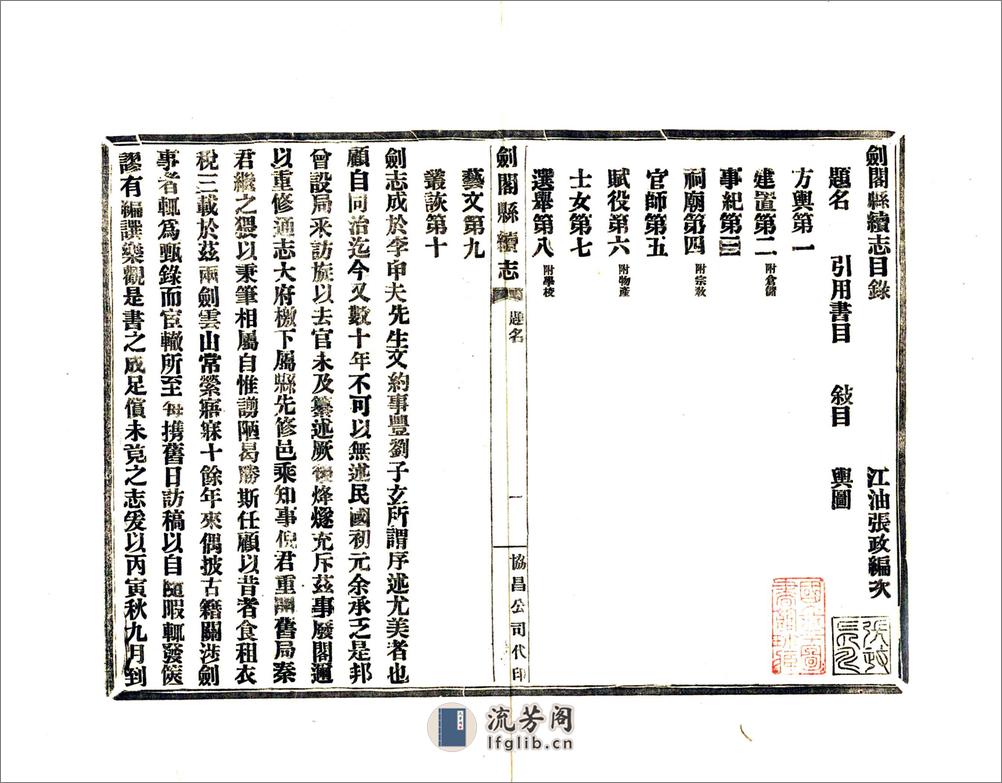 劍閣縣續志目錄
江油張政編次
題名 引用書目 敍目 輿圖
方輿第一
建置第二 附倉儲
事紀第三
祠廟第四 附宗敎
官師第五
賦役第六 附物產
士女第七
選舉第八 附學校
劍閣縣續志 題名 一 協昌公司代印
藝文第九
叢談第十
劍志成於李申夫先生文約事豐劉子玄所謂序述尤美者也
顧自同治迄今又數十年不可以無述民國初元余承乏是邦
曾設局采訪族以去官未及纂述厥後烽燧充斥茲事廢閣邇
以重修通志大府檄下屬縣先修邑乘知事倪君重開舊局秦
君繼之猥以秉筆相屬自惟謭陋曷勝斯任顧以昔者食租衣
稅三載於茲兩劍雲山常縈寤寐十餘年來偶披古籍關涉劍
事者輒爲甄錄而宦轍所至每携舊日訪稿以自隨暇輒發篋
謬有編譔樂觀是書之成足償未竟之志爰以丙寅秋九月到
流芳阁
lfglib.cn